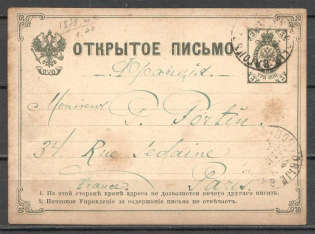 ОТКРЫТОЕ ПИСЬМО.
Франція.
Monsieur
P. Portin
34 Rue
Paris
France
1. На этой сторонѣ кромѣ адреса не дозволяется ничего другаго писать.
2. Почтовое Управленіе за содержаніе письма не отвѣчаетъ.